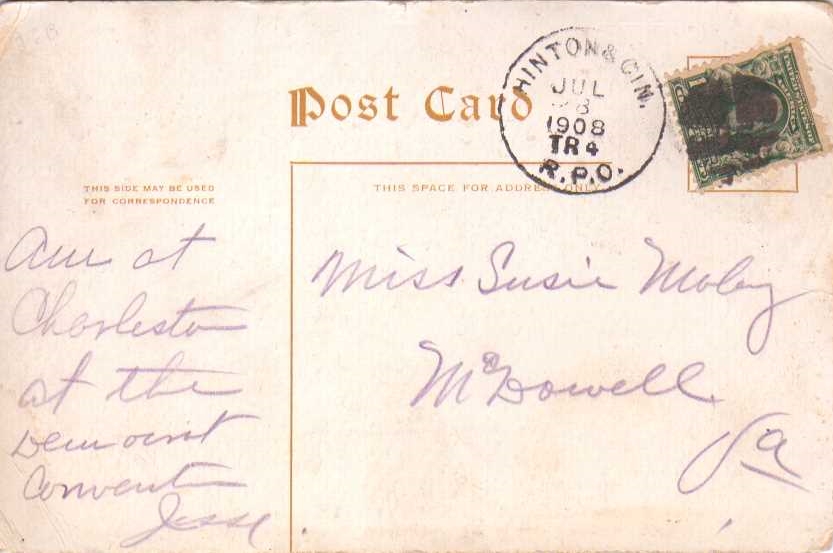 Post Card
HINTON & CIN.
JUL
28
1908
TR 4
R.P.O.
THIS SIDE MAY BE USED
FOR CORRESPONDENCE
THIS SPACE FOR ADDRESS ONLY.
Am at
Charleston
at the
Democrat
Convent
Jesse
Miss Susie
McDowell
Va